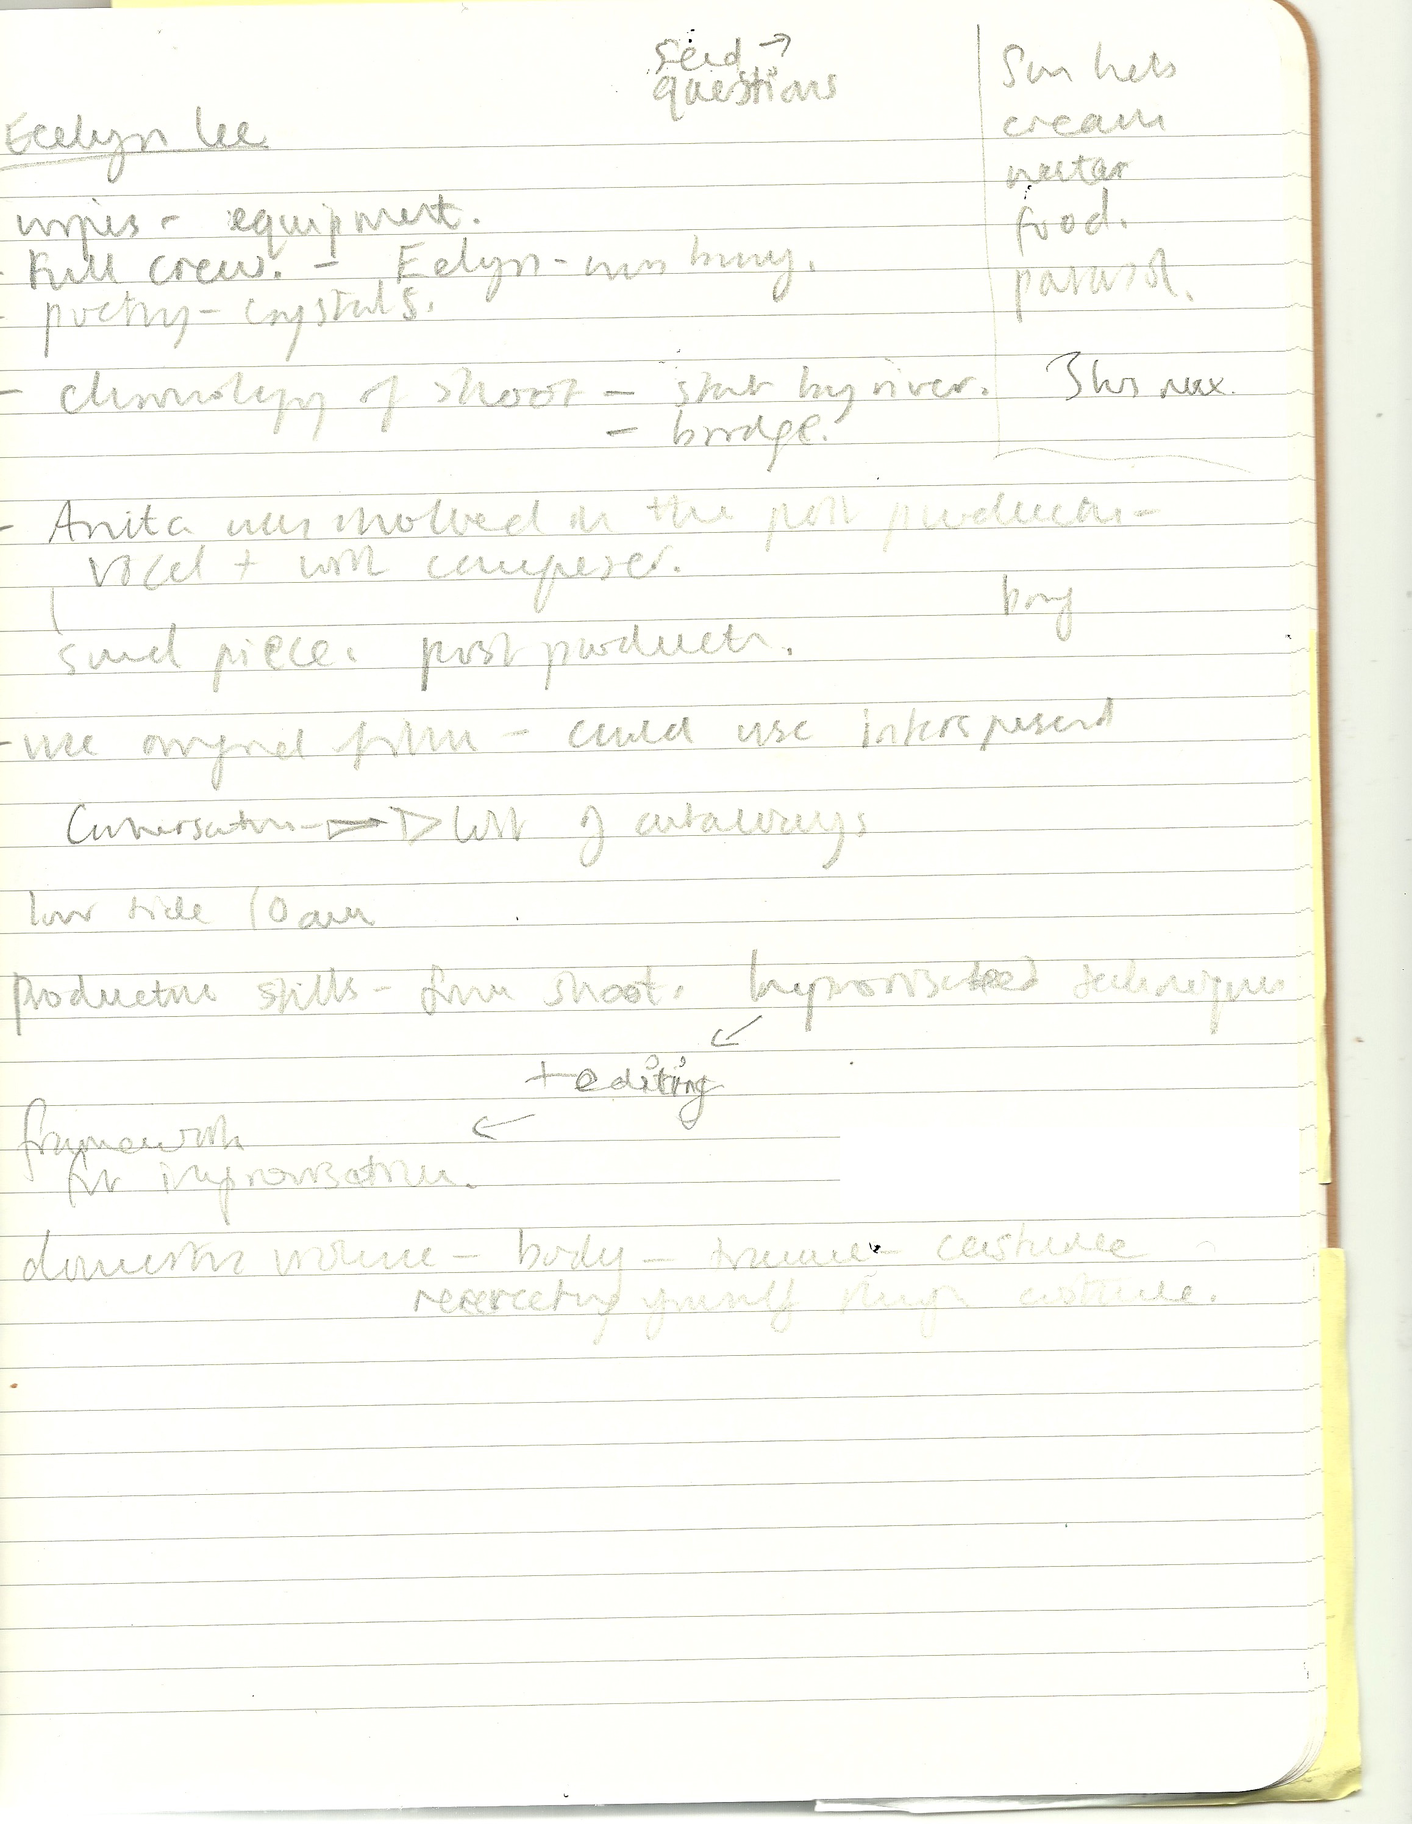 send →
questions
Sun hats
cream
water
food.
parasol.
3 hrs max.
Eelyn Lee
wipes - equipment.
- Full crew. - Eelyn - was busy.
- poetry - crystals.
- chronology of shoot - start by river.
- bridge.
- Anita was involved in the post production -
vocal + with composer.
bring
sound piece. post production.
- use original film - could use interspersed
Conversation → List of cutaways
low tide 10 am
production stills - from shoot. Improvised techniques
+ editing
framework
for improvisation.
domestic violence - body - trauma - costume -
yourself through costume.